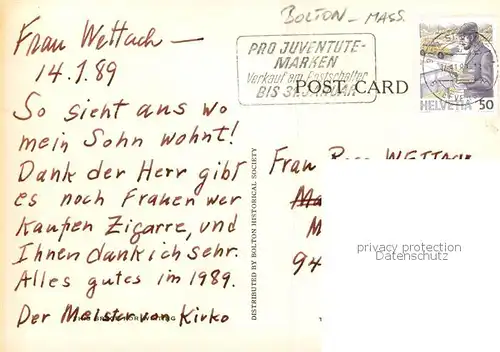 Frau Wettach —
14.1.89
So sieht aus wo
mein Sohn wohnt!
Dank der Herr gibt
es noch Frauen wer
kaufen Zigarre, und
Ihnen dank ich sehr.
Alles gutes im 1989.
Der Meister von Kirko
BOLTON - MASS.
PRO JUVENTUTE-
MARKEN
Verkauf am Postschalter
BIS 31. JANUAR
POST CARD
HELVETIA 50
DISTRIBUTED BY BOLTON HISTORICAL SOCIETY
Frau WETTACH
M
94
privacy protection
Datenschutz